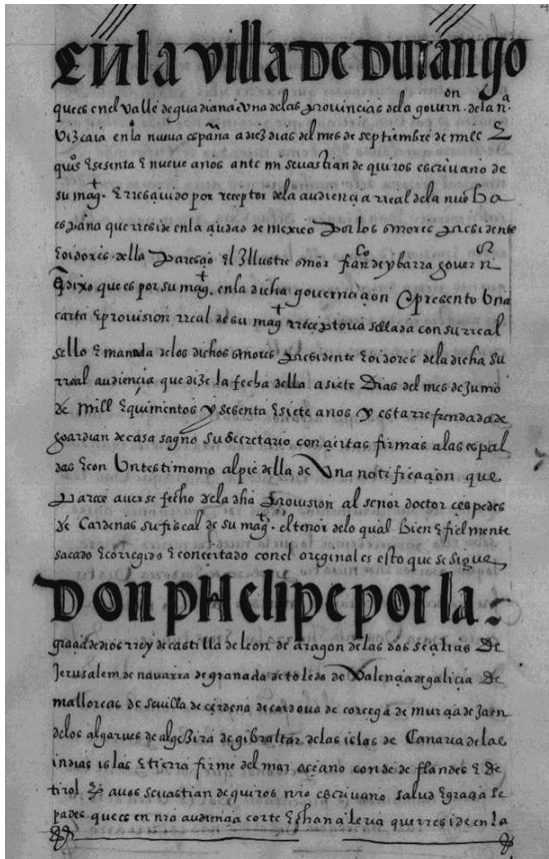 En la villa de durango
ques en el valle de guadiana una de las provincias de la governon de la na
vizcaia en la nueva españa a diez dias del mes de septiembre de mill E
quios E sesenta E nueve años ante mi sevastian de quiros escrivano de
su mag. E rresçiuido por receptor de la audiençia rreal de la nueba
españa que rreside en la çiudad de mexico por los señores presidente
E oidores della pareçio el Illustre señor franco de ybarra governor
E dixo que es por su mag. en la dicha governaçion E presento una
carta E provision rreal de su mag rreceptoria sellada con su rreal
sello E manada de los dichos señores presidente E oidores de la dicha su
rreal audiençia que dize la fecha della a siete dias del mes de Junio
de mill E quinientos y sesenta E siete años y esta rrefrendada de
guardian de casasagno su secretario con çiertas firmas a las espal
das E con un testimonio al pie della de una notificaçion que
pareçe averse fecho de la dha provision al señor doctor çespedes
de Cardenas su fiscal de su mag. el tenor de lo qual bien E fielmente
sacado E corregido E conçertado con el oreginal es esto que se sigue
Don pHelipe por la
graçia de dios rrey de castilla de leon de aragon de las dos secilias De
Jerusalem de navarra de granada de toledo de valençia de galicia De
mallorcas de sevilla de çerdeña de cordova de corcega de murçia de Jaen
de los algarves de algezira de gibraltar de las islas de Canaria de las
indias islas E tierra firme del mar oçeano conde de flandes E de
tirol a vos sevastian de quiros nro escrivano salud E graçia se
pades ques en nra audiençia corte E chançileria que rreside en la